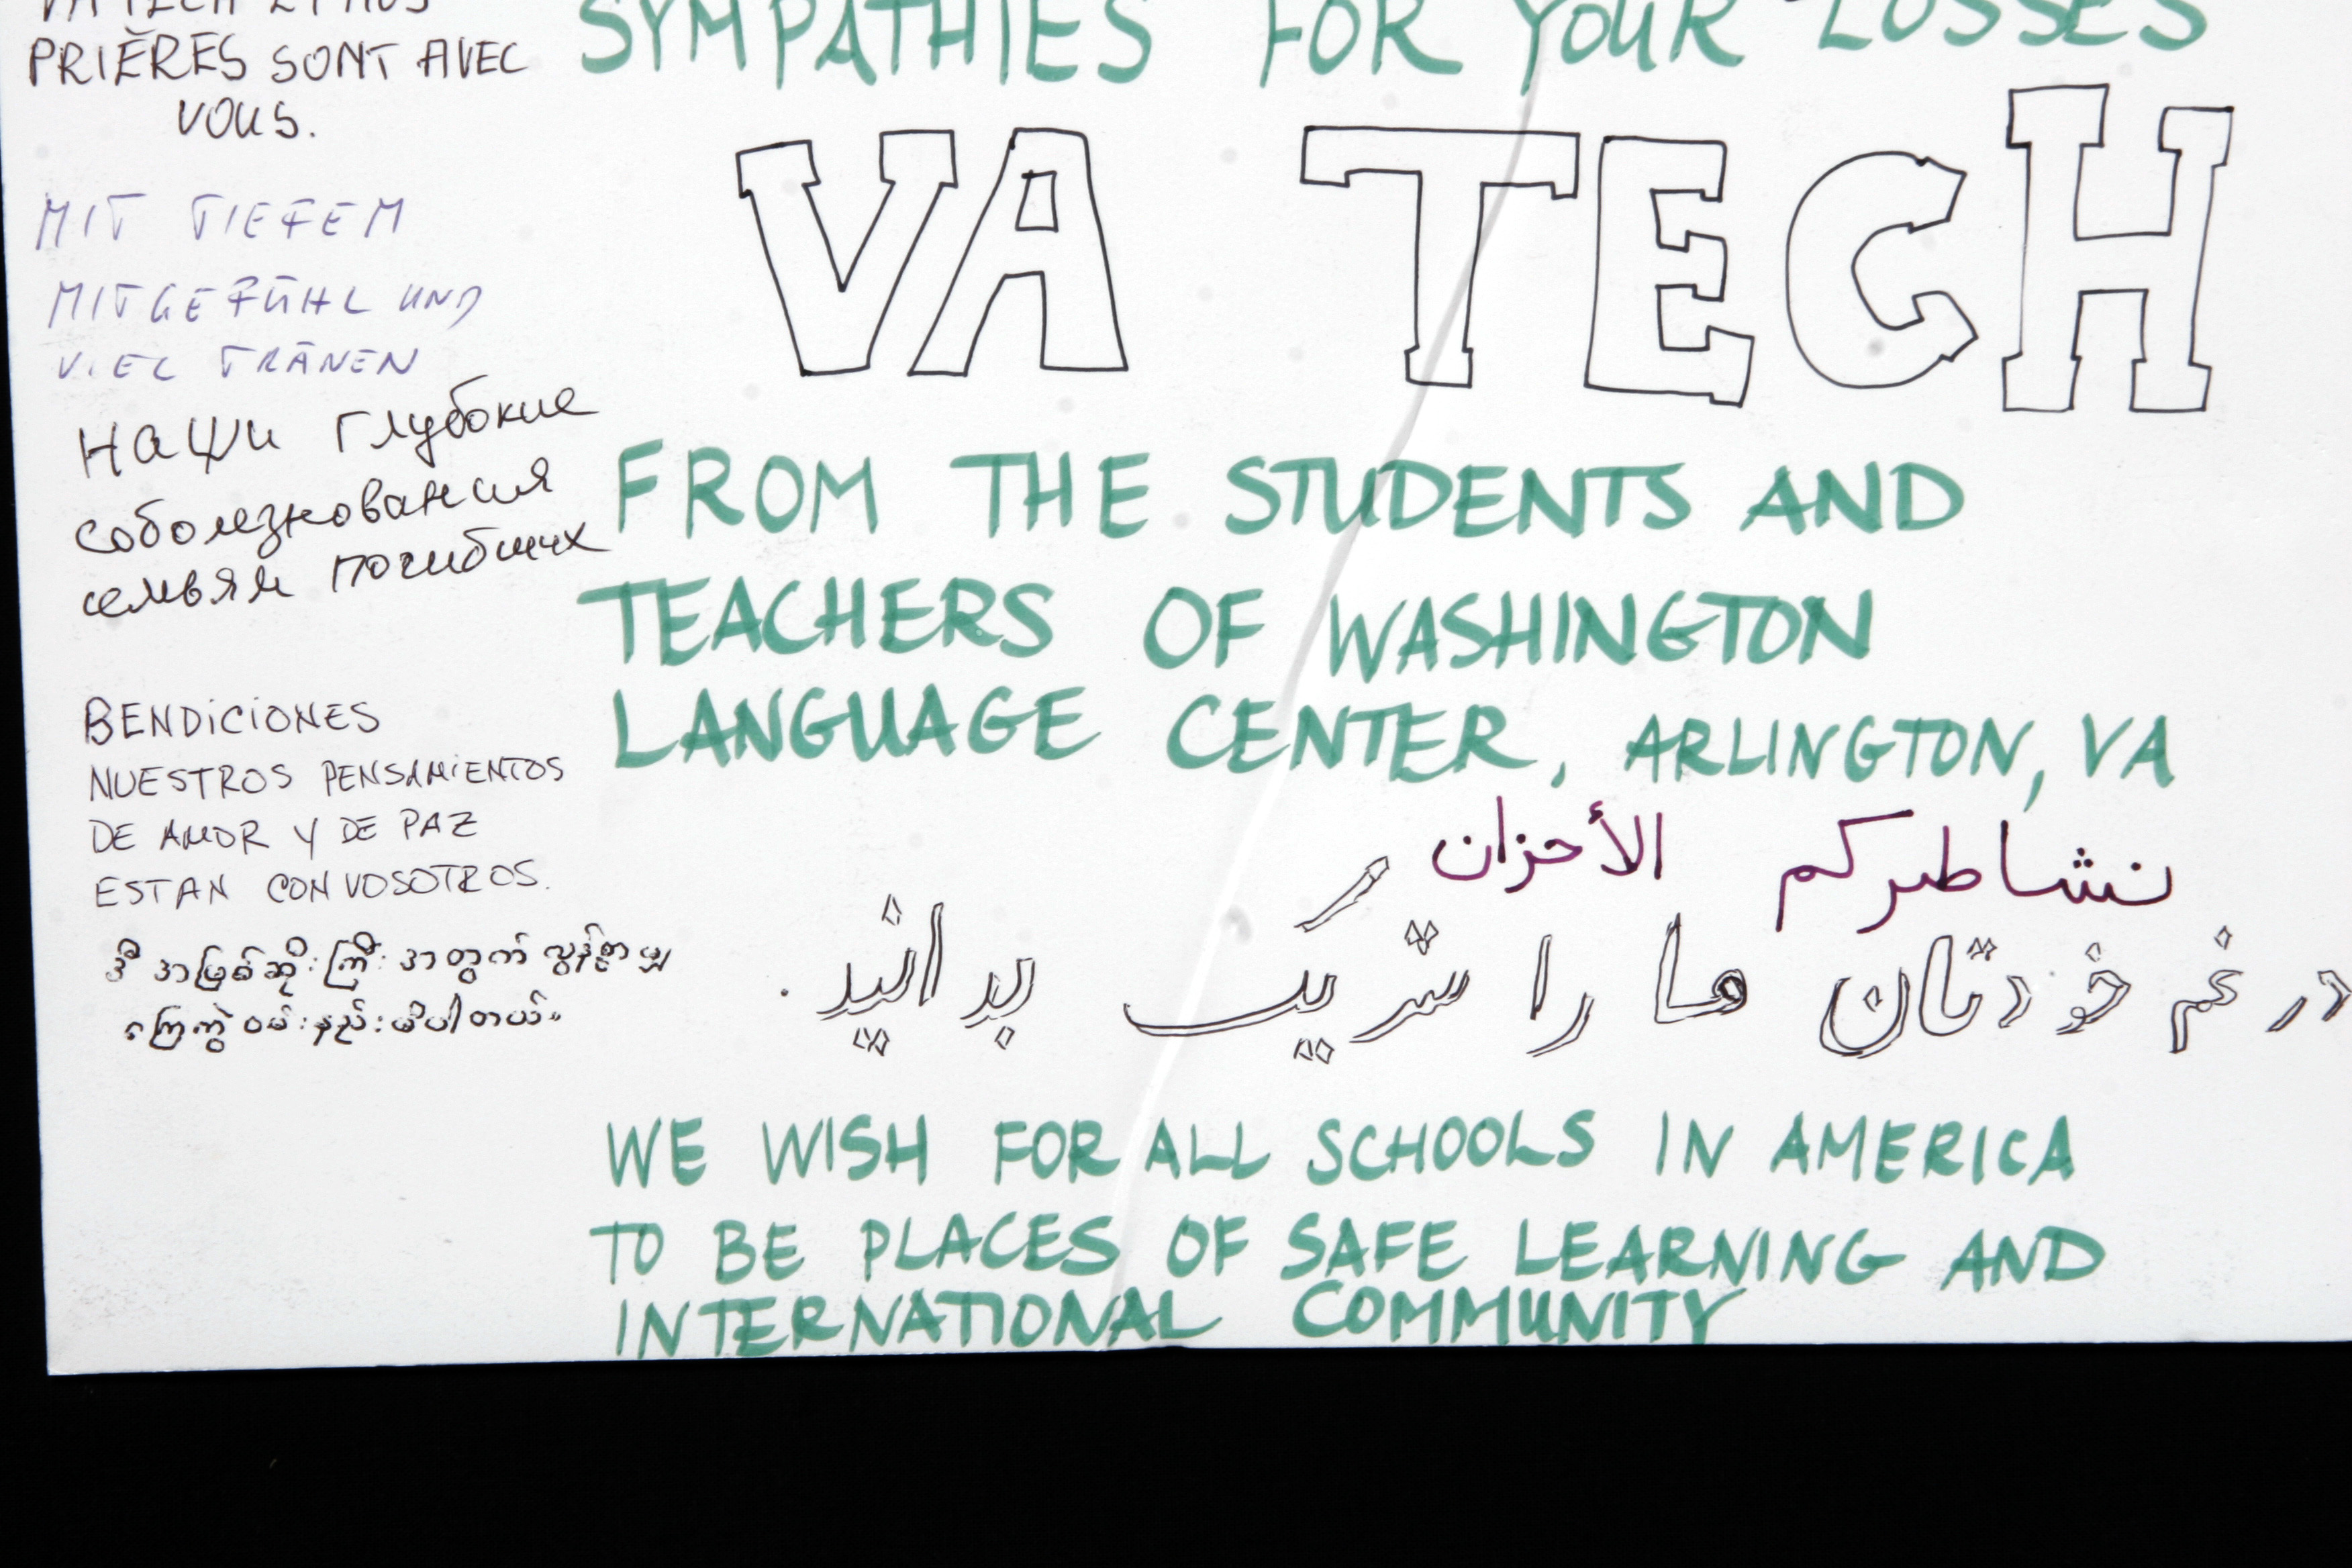 PRIÈRES SONT AVEC
VOUS.
MIT TIEFEM
MITGEFÜHL UND
VIEL TRÄNEN
Наши глубокие
соболезнования
семьям погибших
BENDICIONES
NUESTROS PENSAMIENTOS
DE AMOR Y DE PAZ
ESTAN CON VOSOTROS.
ဒီ အဖြစ်ဆိုးကြီး အတွက် လွန်စွာမှ
ကြေကွဲဝမ်းနည်းမိပါတယ်။
SYMPATHIES FOR YOUR LOSSES
VA TECH
FROM THE STUDENTS AND
TEACHERS OF WASHINGTON
LANGUAGE CENTER, ARLINGTON, VA
نشاطركم الأحزان
در غم خودتان ما را شریک بدانید.
WE WISH FOR ALL SCHOOLS IN AMERICA
TO BE PLACES OF SAFE LEARNING AND
INTERNATIONAL COMMUNITY